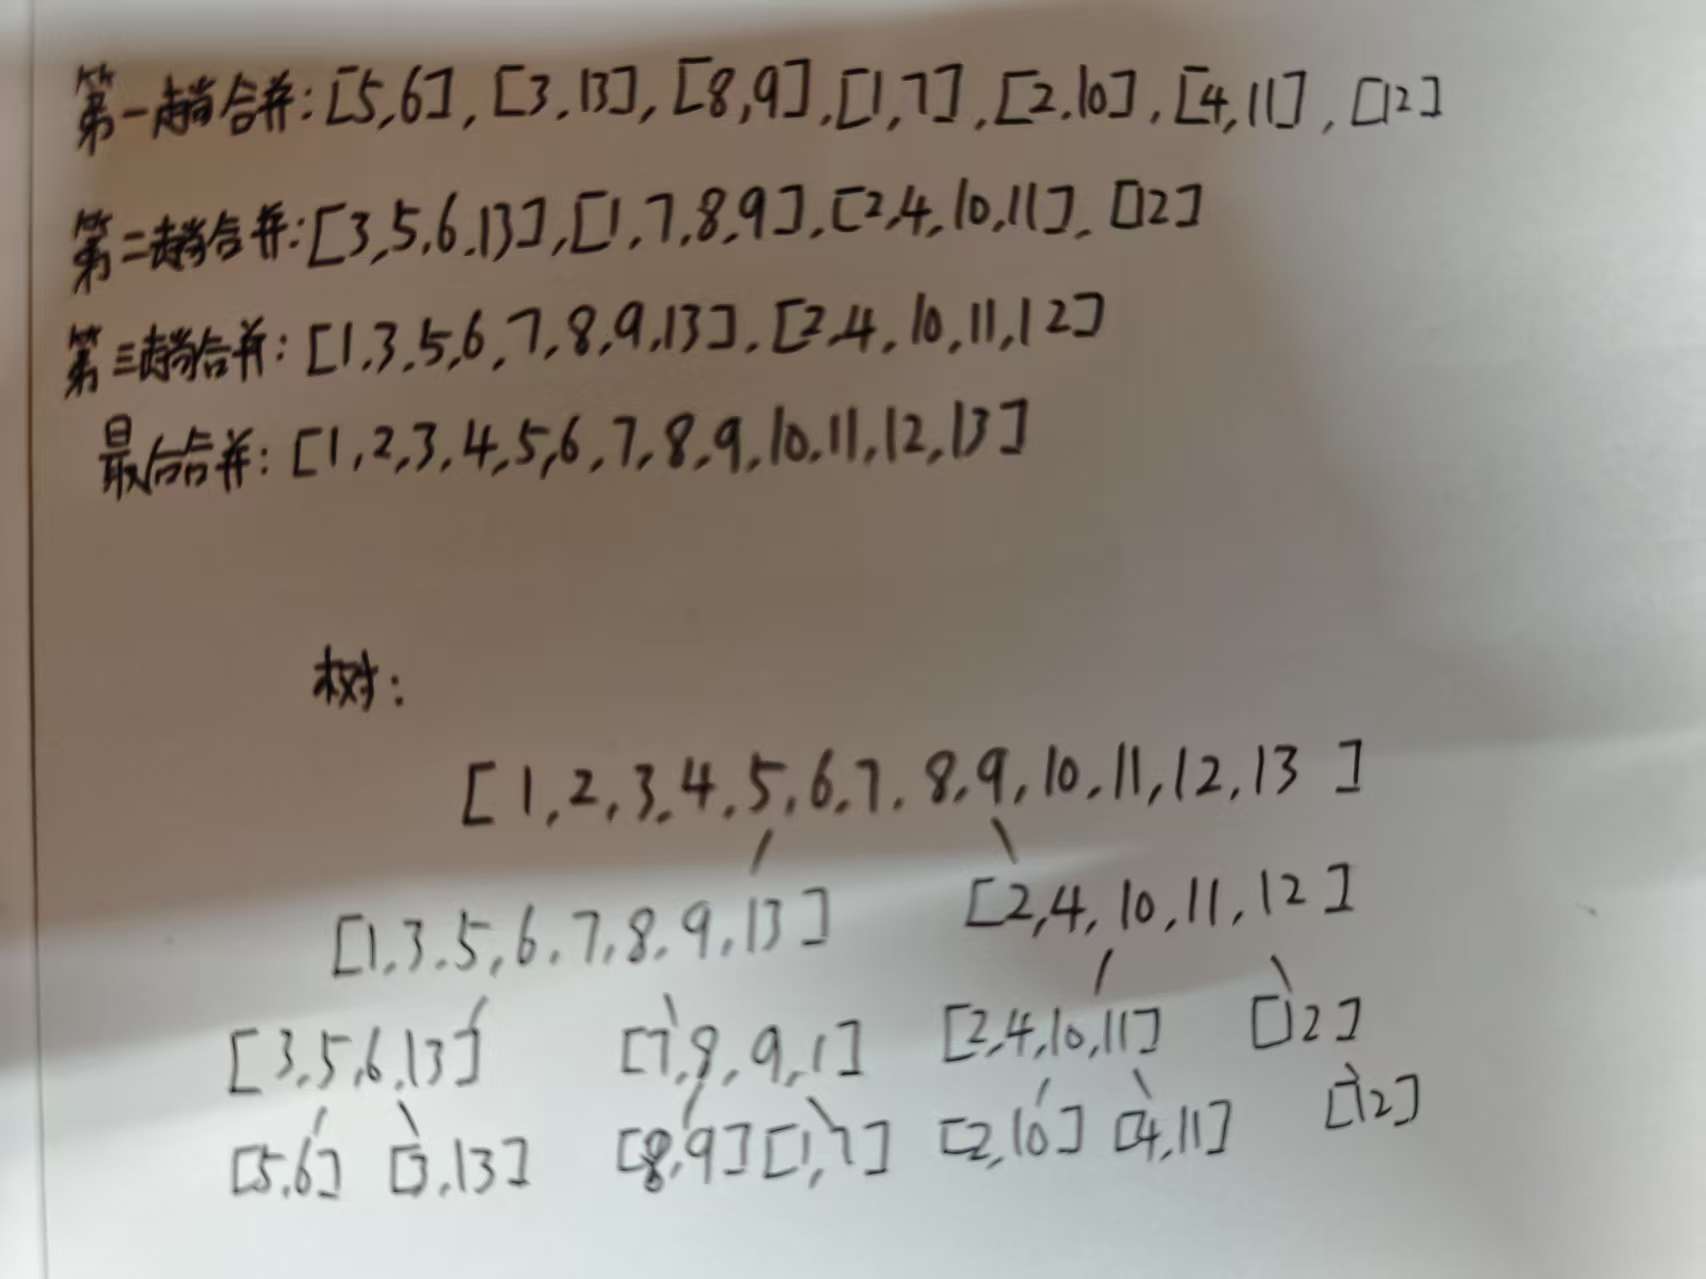 第一趟合并:[5,6],[3,13],[8,9],[1,7],[2,10],[4,11],[12]
第二趟合并:[3,5,6,13],[1,7,8,9],[2,4,10,11],[12]
第三趟合并:[1,3,5,6,7,8,9,13],[2,4,10,11,12]
最后合并:[1,2,3,4,5,6,7,8,9,10,11,12,13]
树:
[1,2,3,4,5,6,7,8,9,10,11,12,13]
[1,3,5,6,7,8,9,13] [2,4,10,11,12]
[3,5,6,13] [7,8,9,1] [2,4,10,11] [12]
[5,6] [3,13] [8,9] [1,7] [2,10] [4,11] [12]